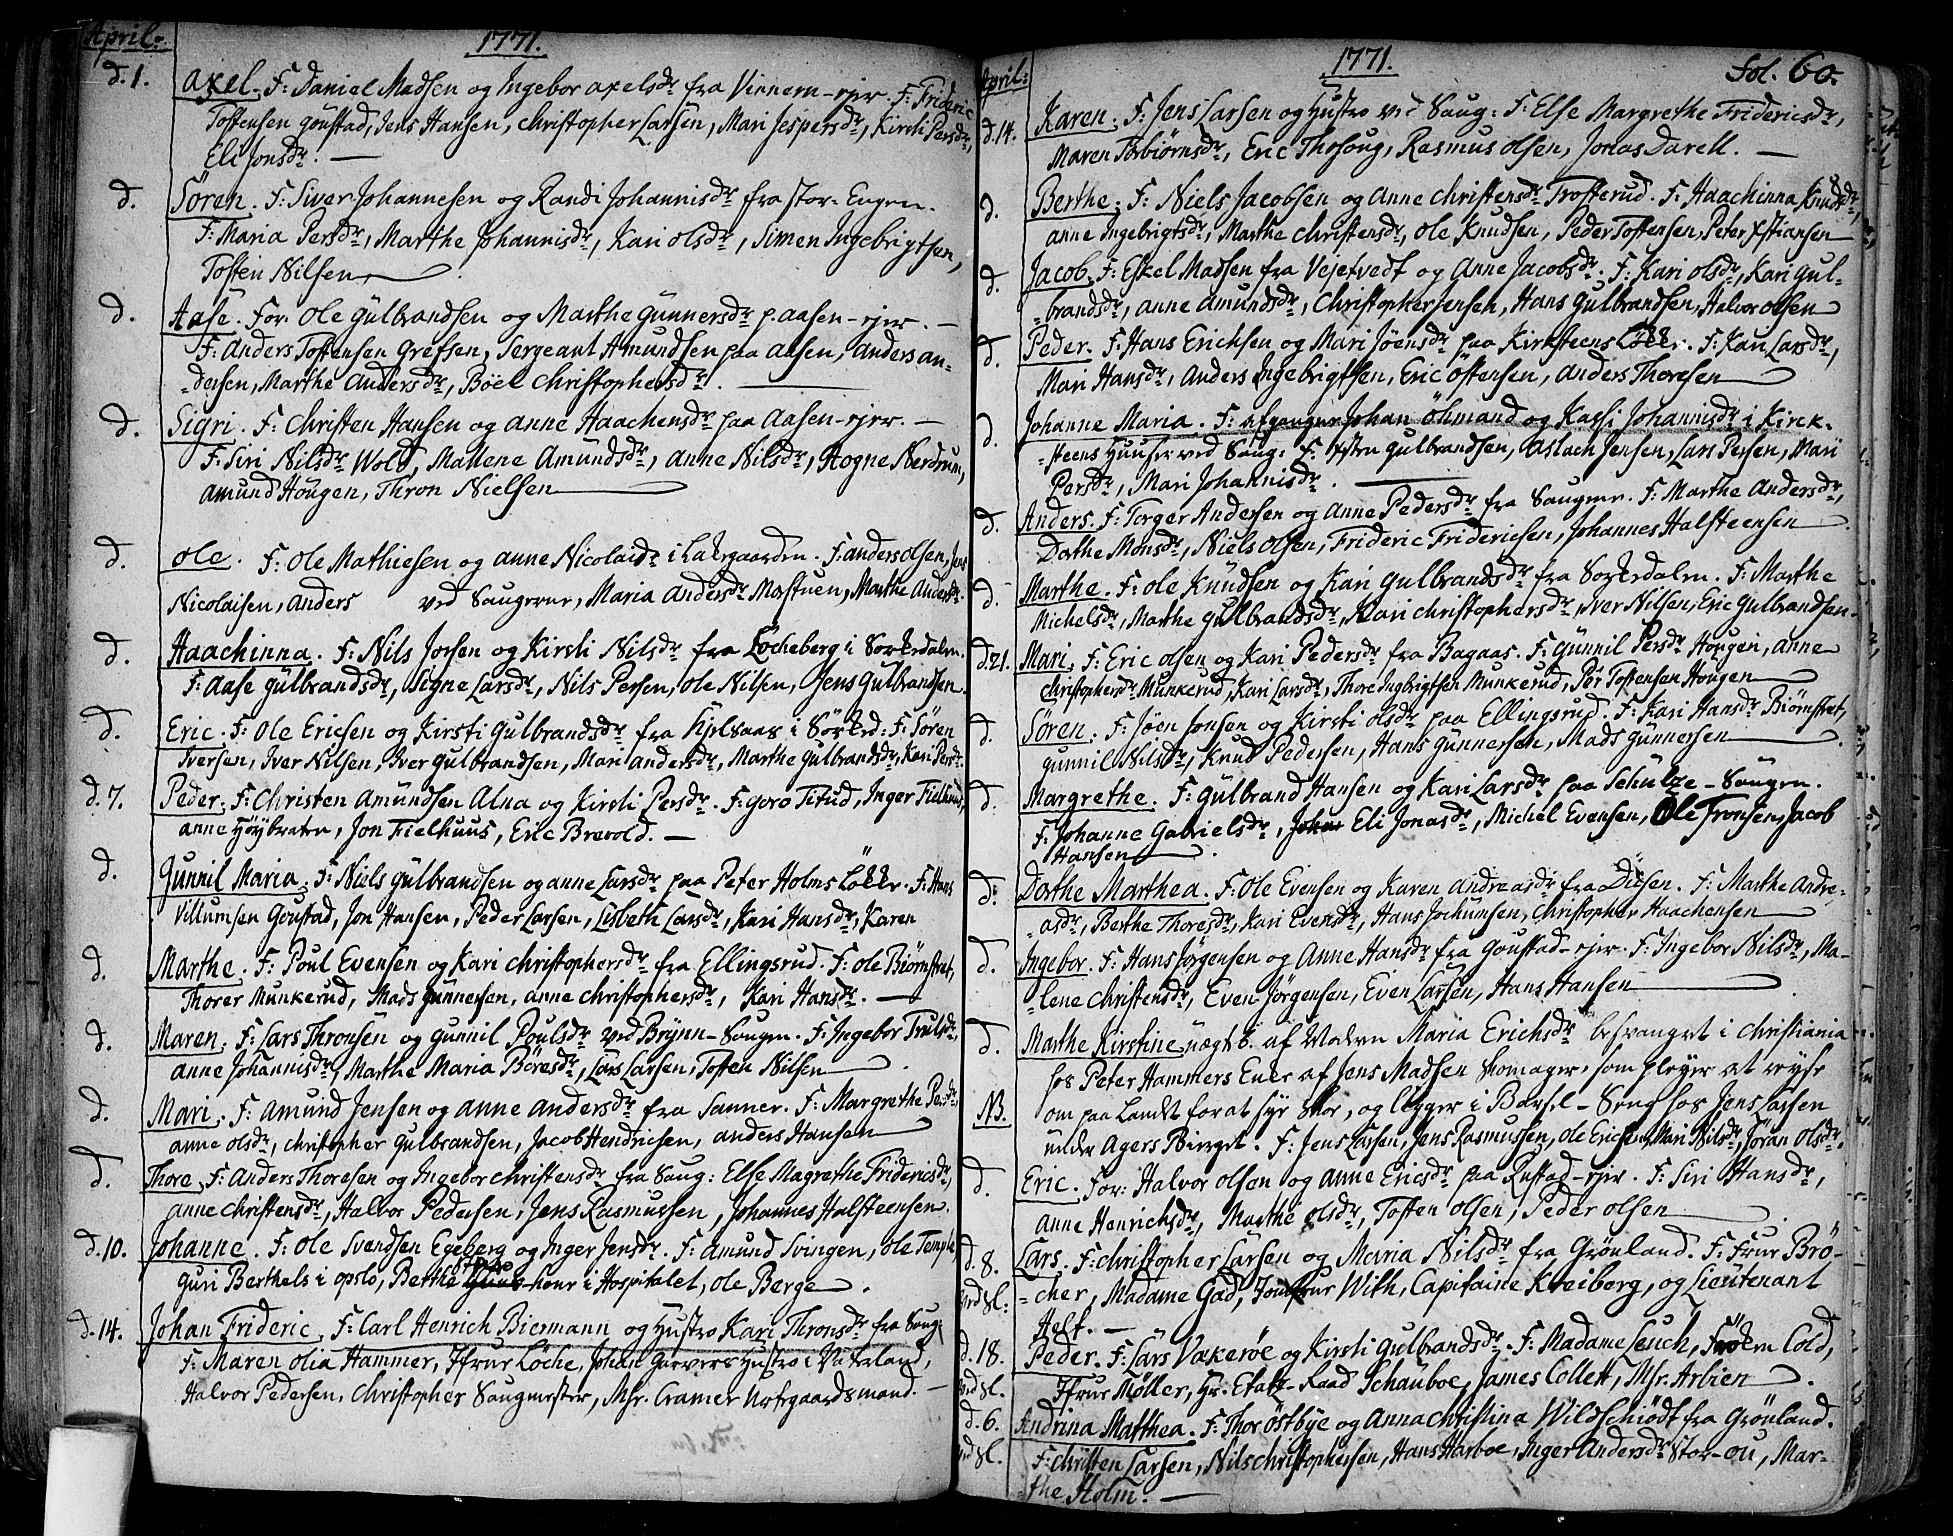 April: 1771.
d. 1. Axel. F: Daniel Madsen og Ingebor Axelsdr fra Vinnern-ejer. F: Frideric
Tostensen Goustad, Jens Hansen, Christopher Larsen, Mari Jespersdr, Kirsti Persdr,
Eli Jonsdr. —
d. Sören. F: Siver Johannesen og Randi Johannisdr fra Stor-Engen.
F: Maria Persdr, Marthe Johannisdr, Kari Olsdr, Simen Ingebrigtsen,
Tosten Nilsen
d. Aase. For. Ole Gulbrandsen og Marthe Gunnersdr p. Aasen-ejer. —
F: Anders Tostensen Grefsen, Sergeant Amundsen paa Aasen, Anders An-
-dersen, Marthe Andersdr, Böel Christophersdr.
d. Sigri. F: Christen Hansen og Anne Haachensdr paa Aasen-ejer. —
F: Siri Nilsdr Wold, Mallene Amundsdr, Anne Nilsdr, Hogne Nerdrum,
Amund Hougen, Thron Nielsen
d. Ole. F: Ole Mathiesen og Anne Nicolaisdr i Lakegaarden. F: Anders Olsen, Jens
Nicolaisen, Anders ved Saugerne, Maria Andersdr Mostuen, Marthe Andersdr
d. Haachinna. F: Nils Jorsen og Kirsti Nilsdr fra Löcheberg i Sorkedalen.
F: Aase Gulbrandsdr, Signe Larsdr, Nils Persen, Ole Nilsen, Jens Gulbrandsen
d. Eric. F: Ole Ericsen og Kirsti Gulbrandsdr fra Kjelsaas i Sörked. F: Sören
Iversen, Iver Nilsen, Iver Gulbrandsen, Mari Andersdr, Marthe Gulbrandsdr, Kari Persdr
d. 7. Peder. F: Christen Amundsen Alna og Kirsti Persdr. F: Goro Titud, Inger Fielhuus,
Anne Höybraten, Jon Fielhuus, Eric Brevold. —
d. Gunnil Maria. F: Niels Gulbrandsen og Anne Larsdr paa Peter Holms Lökke. F: Hans
Villumsen Goustad, Jon Hansen, Peder Larsen, Lisbeth Larsdr, Kari Hansdr, Karen
d. Marthe. F: Poul Evensen og Kari Christophersdr fra Ellingsrud. F: Ole Biörnstret,
Thorer Munkerud, Mads Gunnersen, Anne Christophersdr, Kari Hansdr. —
d. Maren. F: Lars Thronsen og Gunnil Poulsdr ved Brynn-Saugen. F: Ingebor Trulsdr,
Anne Johannisdr, Marthe Maria Böresdr, Lars Larsen, Tosten Nilsen
d. Mari. F: Amund Jensen og Anne Andersdr fra Sanner. F: Margrethe Persdr,
Anne Olsdr, Christopher Gulbrandsen, Jacob Hendricsen, Anders Hansen
d. Thore. F: Anders Thoresen og Ingebor Christensdr fra Saug: Else Magrethe Fridericsdr,
Anne Christensdr, Halvor Pedersen, Jens Rasmussen, Johannes Halsteensen.
d. 10. Johanne. F: Ole Svendsen Egeberg og Inger Jensdr. F: Amund Svingen, Ole Temple,
Guri Berthels i Opslo, Berthe kone i Hospitalet, Ole Berge.
d. 14. Johan Frideric. F: Carl Henrich Biermann og Hustro Kari Thronsdr fra Saug
F: Maren Olia Hammer, Jfrue Löche, Johan Garvers Hustro i Vaterland,
Halvor Pedersen, Christopher Saugmester, Msr. Cramer —
1771. Fol. 60.
April:
d. 14. Karen. F: Jens Larsen og Hustro ved Saug: F: Else Margrethe Fridericsdr,
Maren Torbiörnsdr, Eric Thosoug, Rasmus Olsen, Jonas Darell. —
d. Berthe. F: Niels Jacobsen og Anne Christensdr Trosterud. F: Haachinna Knudsdr,
Anne Ingebrigtsdr, Marthe Christensdr, Ole Knudsen, Peder Tostensen, Peter Xstiansen
d. Jacob. F: Eskel Madsen fra Vejetvedt og Anne Jacobsdr. F: Kari Olsdr, Kari Gul-
-brandsdr, Anne Amundsdr, Christopher Jensen, Hans Gulbrandsen, Halvor Olsen
d. Peder. F: Hans Erichsen og Mari Jöensdr paa Kirksteens Lökke. F: Kari Larsdr,
Mari Hansdr, Anders Ingebrigtsen, Eric Östensen, Anders Thoresen
d Johanne Maria. F: afgangne Johan Öhmand og Kassi Johannisdr i Kirck-
-steens Huuse ved Saug: F: Gulbrandsen, Aslach Jensen, Lars Persen, Mari
Persdr, Mari Johannisdr.
d. Anders. F: Torger Andersen og Anne Pedersdr fra Saugene. F: Marthe Andersdr,
Dorthe Monsdr, Niels Olsen, Frideric Fridericsen, Johannes Halsteensen
d. Marthe. F: Ole Knudsen og Kari Gulbrandsdr fra Sorkedalen. F: Marthe
Michelsdr, Marthe Gulbrandsdr, Kari Christophersdr, Iver Nilsen, Eric Gulbrandsen
d. 21. Mari. F: Eric Olsen og Kari Pedersdr fra Bagaas. F: Gunnil Persdr Hougen, Anne
Christophersdr Munkerud, Kari Larsdr, Thore Ingbrigtsen Munkerud, Per Tostensen Hougen
d. Sören. F: Jöen Jonsen og Kirsti Olsdr paa Ellingsrud. F: Kari Hansdr Biörnstret,
Gunnil Nilsdr, Knud Pedersen, Hans Gunnersen, Mads Gunnersen
d. Margrethe. F: Gulbrand Hansen og Kari Larsdr paa Schulze-Saugen.
F: Johanne Gabrielsdr, Eli Jonasdr, Michel Evensen, Ole Tronsen, Jacob
Hansen
d. Dorthe Marthea. F: Ole Evensen og Karen Andreasdr fra Disen. F: Marthe Andre-
-asdr, Berthe Thoresdr, Kari Evensdr, Hans Jochumsen, Christopher Haachensen
d. Ingebor. F: Hans Jörgensen og Anne Hansdr fra Goustad-ejer. F: Ingebor Nilsdr, Ma-
lene Christensdr, Even Jörgensen, Even Larsen, Hans Hansen
d. Marthe Kirstine uægt b. af Moderen Maria Erichsdr besvangret i Christiania
hos Peter Hammers Enke af Jens Madsen Skomager, som pleyer at reyse
NB. om paa Landet for at sye Skoe, og ligger i Barsel-Seng hos Jens Larsen
under Agers Bierget. F: Jens Larsen, Jens Rasmussen, Ole Ericsen, Mari Nilsdr, Söran Olsdr.
d. Eric. For: Halvor Olsen og Anne Ericsdr paa Rustad-ejer. F: Siri Hansdr,
Anne Henrichsdr, Marthe Olsdr, Tosten Olsen, Peder Olsen
d. 8. Lars. F: Christopher Larsen og Maria Nilsdr fra Grönland. F: Frue Brö-
-cher, Madame Gad, Jomfrue With, Capitaine Kreiberg, og Lieutenant
Holst. —
d. 18. Peder. F: Lars Vækeröe og Kirsti Gulbrandsdr. F: Madame Leuch, Frökn Cold,
Jfrue Möller, Hr. Etatz-Raad Schauboe, James Collett, Msr. Arbien
d. 6. Andrina Matthea. F: Thor Östbye og Anna Christina Wildschiödt fra Grönland.
F: Christen Larsen, Nils Christophersen, Hans Harboe, Inger Andersdr Stor-ou, Mar-
-the Holm. —